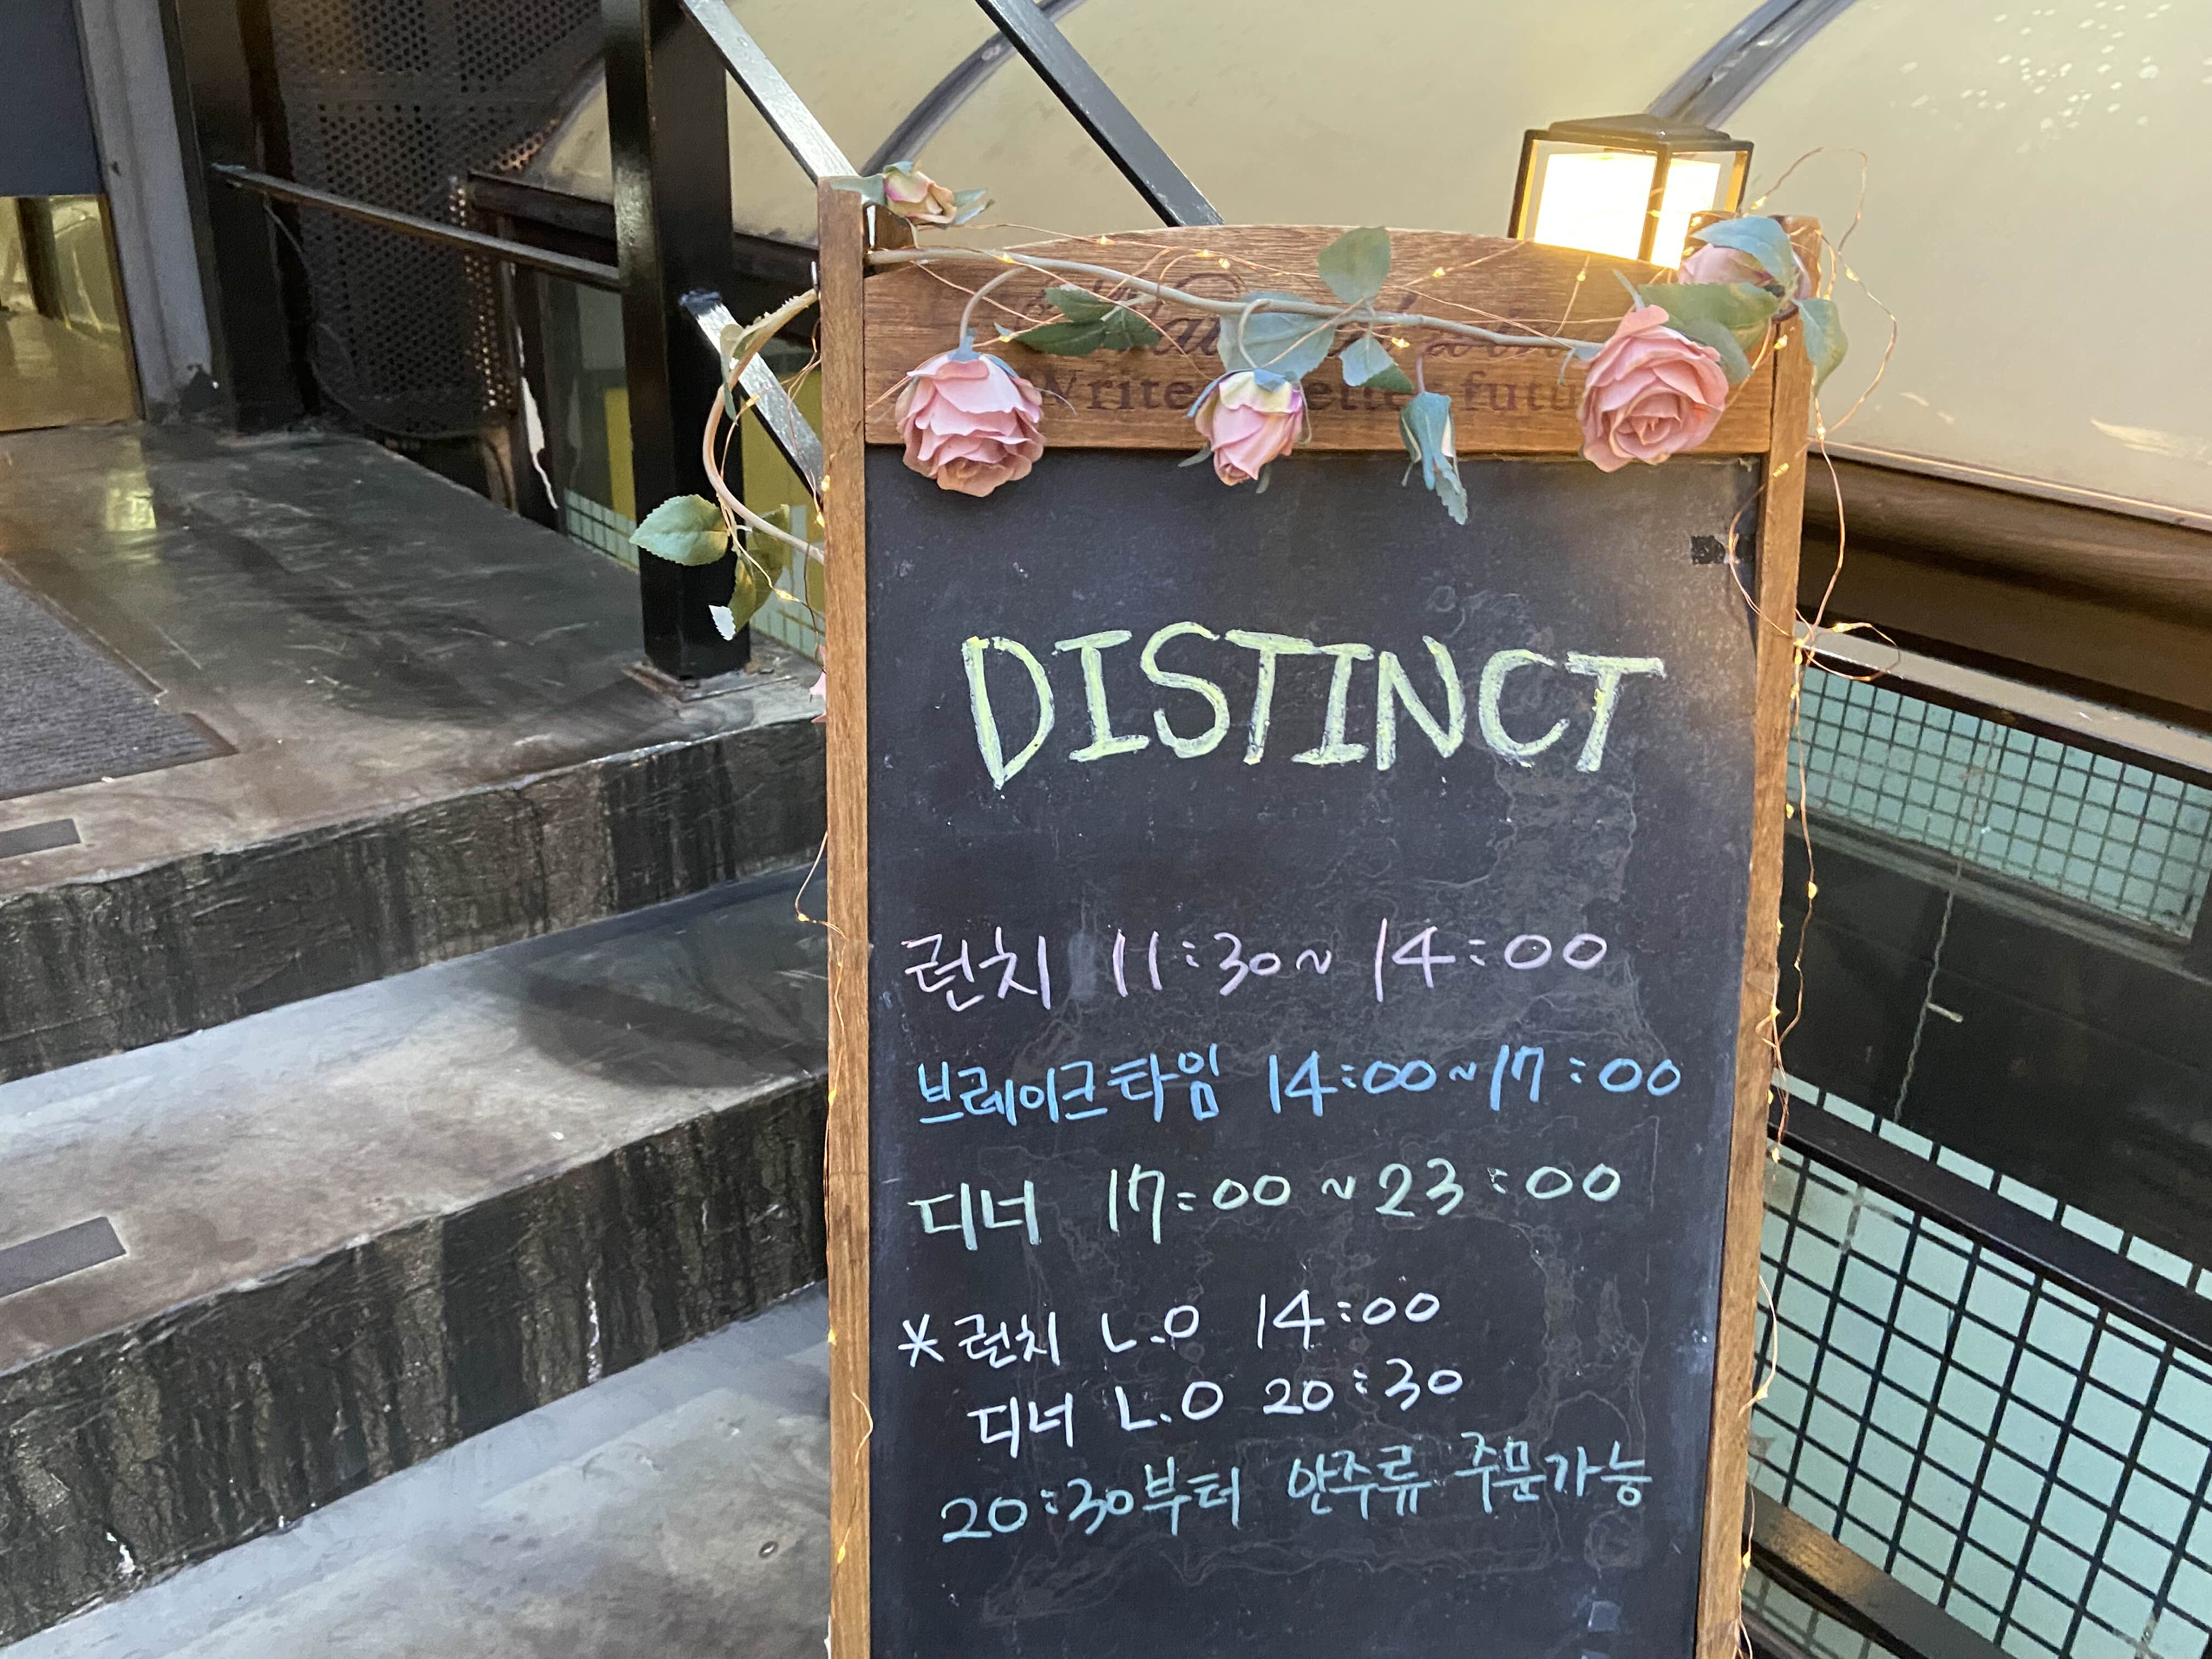 Write better futu
DISTINCT
런치 11:30~14:00
브레이크타임 14:00~17:00
디너 17:00~23:00
*런치 L.O 14:00
디너 L.O 20:30
20:30부터 안주류 주문가능